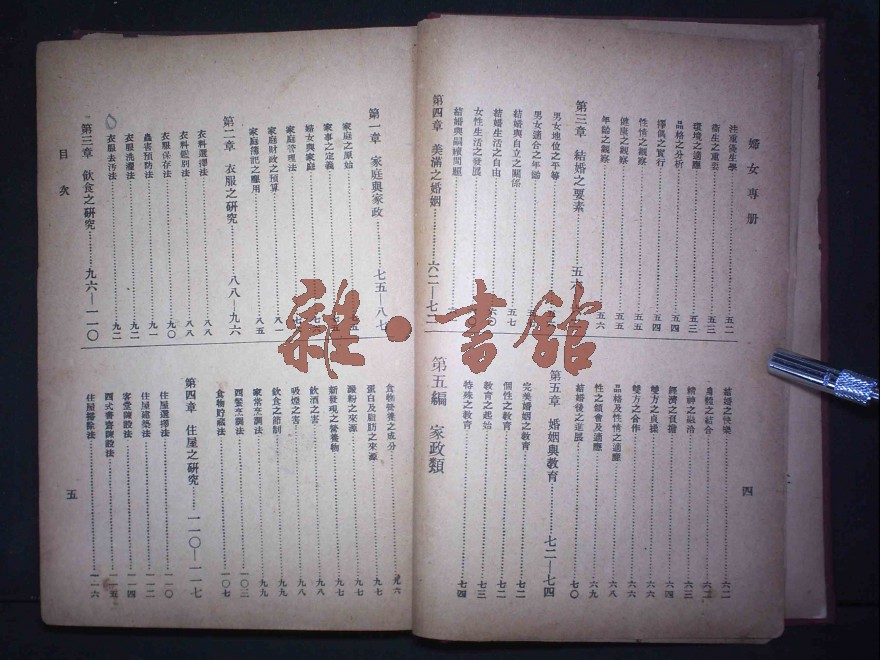 婦女專册
注重優生學……五二
衛生之重要……五三
環境之適應……五三
品格之分析……五四
擇偶之實行……五四
性情之觀察……五五
健康之觀察……五五
年齡之觀察……五六
第三章 結婚之要素……五六
男女地位之平等
男女適合之年齡
結婚與自立之關係
結婚生活之自由……五七
女性生活之發展……六〇
結婚與嗣續問題
第四章 美滿之婚姻……六二—七二
結婚之快樂……六二
身體之結合……六二
精神之融洽……六三
經濟之負擔……六四
雙方之貞操……六六
雙方之合作……六六
品格及性情之適應……六八
性之領會及適應……六九
結婚後之進展……七〇
第五章 婚姻與教育……七二—七四
完美婚姻之教育……七二
個性之教育……七二
教育之起始……七三
特殊之教育……七四
第五編 家政類
四
第一章 家庭與家政……七五—八七
家庭之原始
家事之定義
婦女與家庭
家庭管理法
家庭財政之預算……八一
家庭簿記之應用……八五
第二章 衣服之研究……八八—九六
衣料選擇法……八八
衣料鑑別法……八八
衣服保存法……九〇
蟲害預防法……九一
衣服洗濯法……九二
衣服去污法……九二
第三章 飲食之研究……九六—一一〇
目次
食物營養之成分……九六
蛋白及脂肪之來源……九七
澱粉之來源……九七
新發現之營養物……九七
飲酒之害……九八
吸煙之害……九八
飲食之節制……九九
家常烹調法……九九
西餐烹調法……一〇三
食物貯藏法……一〇七
第四章 住屋之研究……一一〇—一一七
住屋選擇法……一一〇
住屋建築法……一一二
客堂陳設法……一一四
西式書齋陳設法……一一五
住屋掃除法……一一六
五
雜·書館